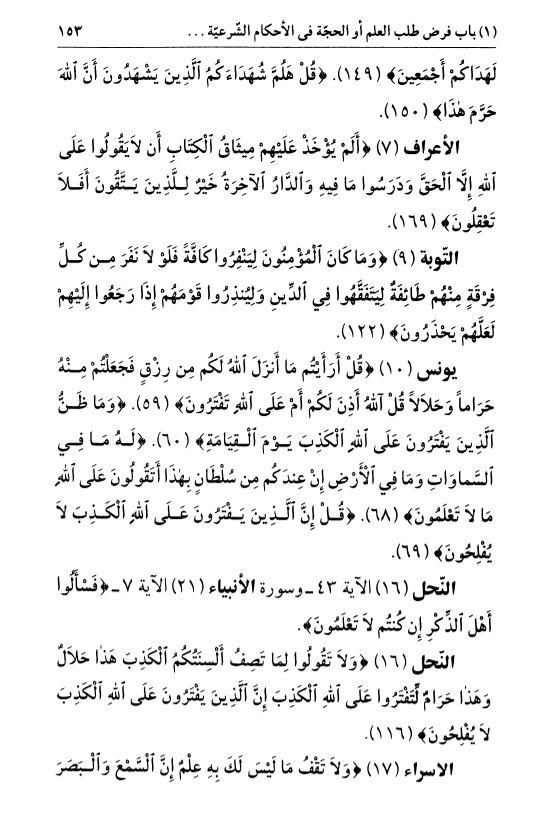 (١) باب فرض طلب العلم أو الحجّة فى الأحكام الشّرعيّة ... ١٥٣
لَهَدَاكُمْ أَجْمَعِينَ﴾ (١٤٩). ﴿قُلْ هَلُمَّ شُهَدَاءَكُمُ ٱلَّذِينَ يَشْهَدُونَ أَنَّ ٱللهَ
حَرَّمَ هٰذَا﴾ (١٥٠).
الأعراف (٧) ﴿أَلَمْ يُؤْخَذْ عَلَيْهِم مِيثَاقُ ٱلْكِتَابِ أَن لاَيَقُولُوا عَلَى
ٱللهِ إِلَّا ٱلْحَقَّ وَدَرَسُوا مَا فِيهِ وَٱلدَّارُ ٱلآخِرَةُ خَيْرٌ لِلَّذِينَ يَتَّقُونَ أَفَلاَ
تَعْقِلُونَ﴾ (١٦٩).
التّوبة (٩) ﴿وَمَا كَانَ ٱلْمُؤْمِنُونَ لِيَنْفِرُوا كَافَّةً فَلَوْ لاَ نَفَرَ مِن كُلِّ
فِرْقَةٍ مِنْهُمْ طَائِفَةٌ لِيَتَفَقَّهُوا فِي ٱلدِّينِ وَلِيُنذِرُوا قَوْمَهُمْ إِذَا رَجَعُوا إِلَيْهِمْ
لَعَلَّهُمْ يَحْذَرُونَ﴾ (١٢٢).
يونس (١٠) ﴿قُلْ أَرَأَيْتُم مَا أَنزَلَ ٱللهُ لَكُم مِن رِزْقٍ فَجَعَلْتُمْ مِنْهُ
حَرَاماً وَحَلاَلاً قُلْ ءَاللهُ أَذِنَ لَكُمْ أَمْ عَلَى ٱللهِ تَفْتَرُونَ﴾ (٥٩). ﴿وَمَا ظَنُّ
ٱلَّذِينَ يَفْتَرُونَ عَلَى ٱللهِ ٱلْكَذِبَ يَوْمَ ٱلْقِيَامَةِ﴾ (٦٠). ﴿لَهُ مَا فِي
ٱلسَّمَاوَاتِ وَمَا فِي ٱلْأَرْضِ إِنْ عِندَكُم مِن سُلْطَانٍ بِهٰذَا أَتَقُولُونَ عَلَى ٱللهِ
مَا لاَ تَعْلَمُونَ﴾ (٦٨). ﴿قُلْ إِنَّ ٱلَّذِينَ يَفْتَرُونَ عَلَى ٱللهِ ٱلْكَذِبَ لاَ
يُفْلِحُونَ﴾ (٦٩).
النّحل (١٦) الآية ٤٣ ـ وسورة الأنبياء (٢١) الآية ٧ ـ ﴿فَسْأَلُوا
أَهْلَ ٱلذِّكْرِ إِن كُنتُم لاَ تَعْلَمُونَ﴾.
النّحل (١٦) ﴿وَلاَ تَقُولُوا لِمَا تَصِفُ أَلْسِنَتُكُمُ ٱلْكَذِبَ هَذَا حَلاَلٌ
وَهَذَا حَرَامٌ لِّتَفْتَرُوا عَلَى ٱللهِ ٱلْكَذِبَ إِنَّ ٱلَّذِينَ يَفْتَرُونَ عَلَى ٱللهِ ٱلْكَذِبَ
لاَ يُفْلِحُونَ﴾ (١١٦).
الاسراء (١٧) ﴿وَلاَ تَقْفُ مَا لَيْسَ لَكَ بِهِ عِلْمٌ إِنَّ ٱلسَّمْعَ وَٱلْبَصَرَ